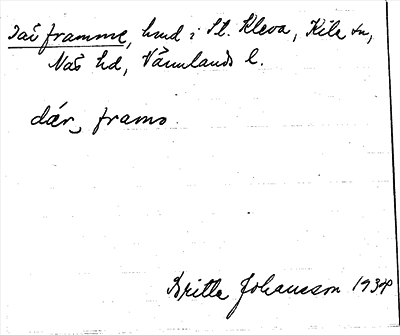 framme, hmd i St. Kleva, Kila sn,
Näs hd, Värmlands l.
där, framo
Britta Johansson 1934